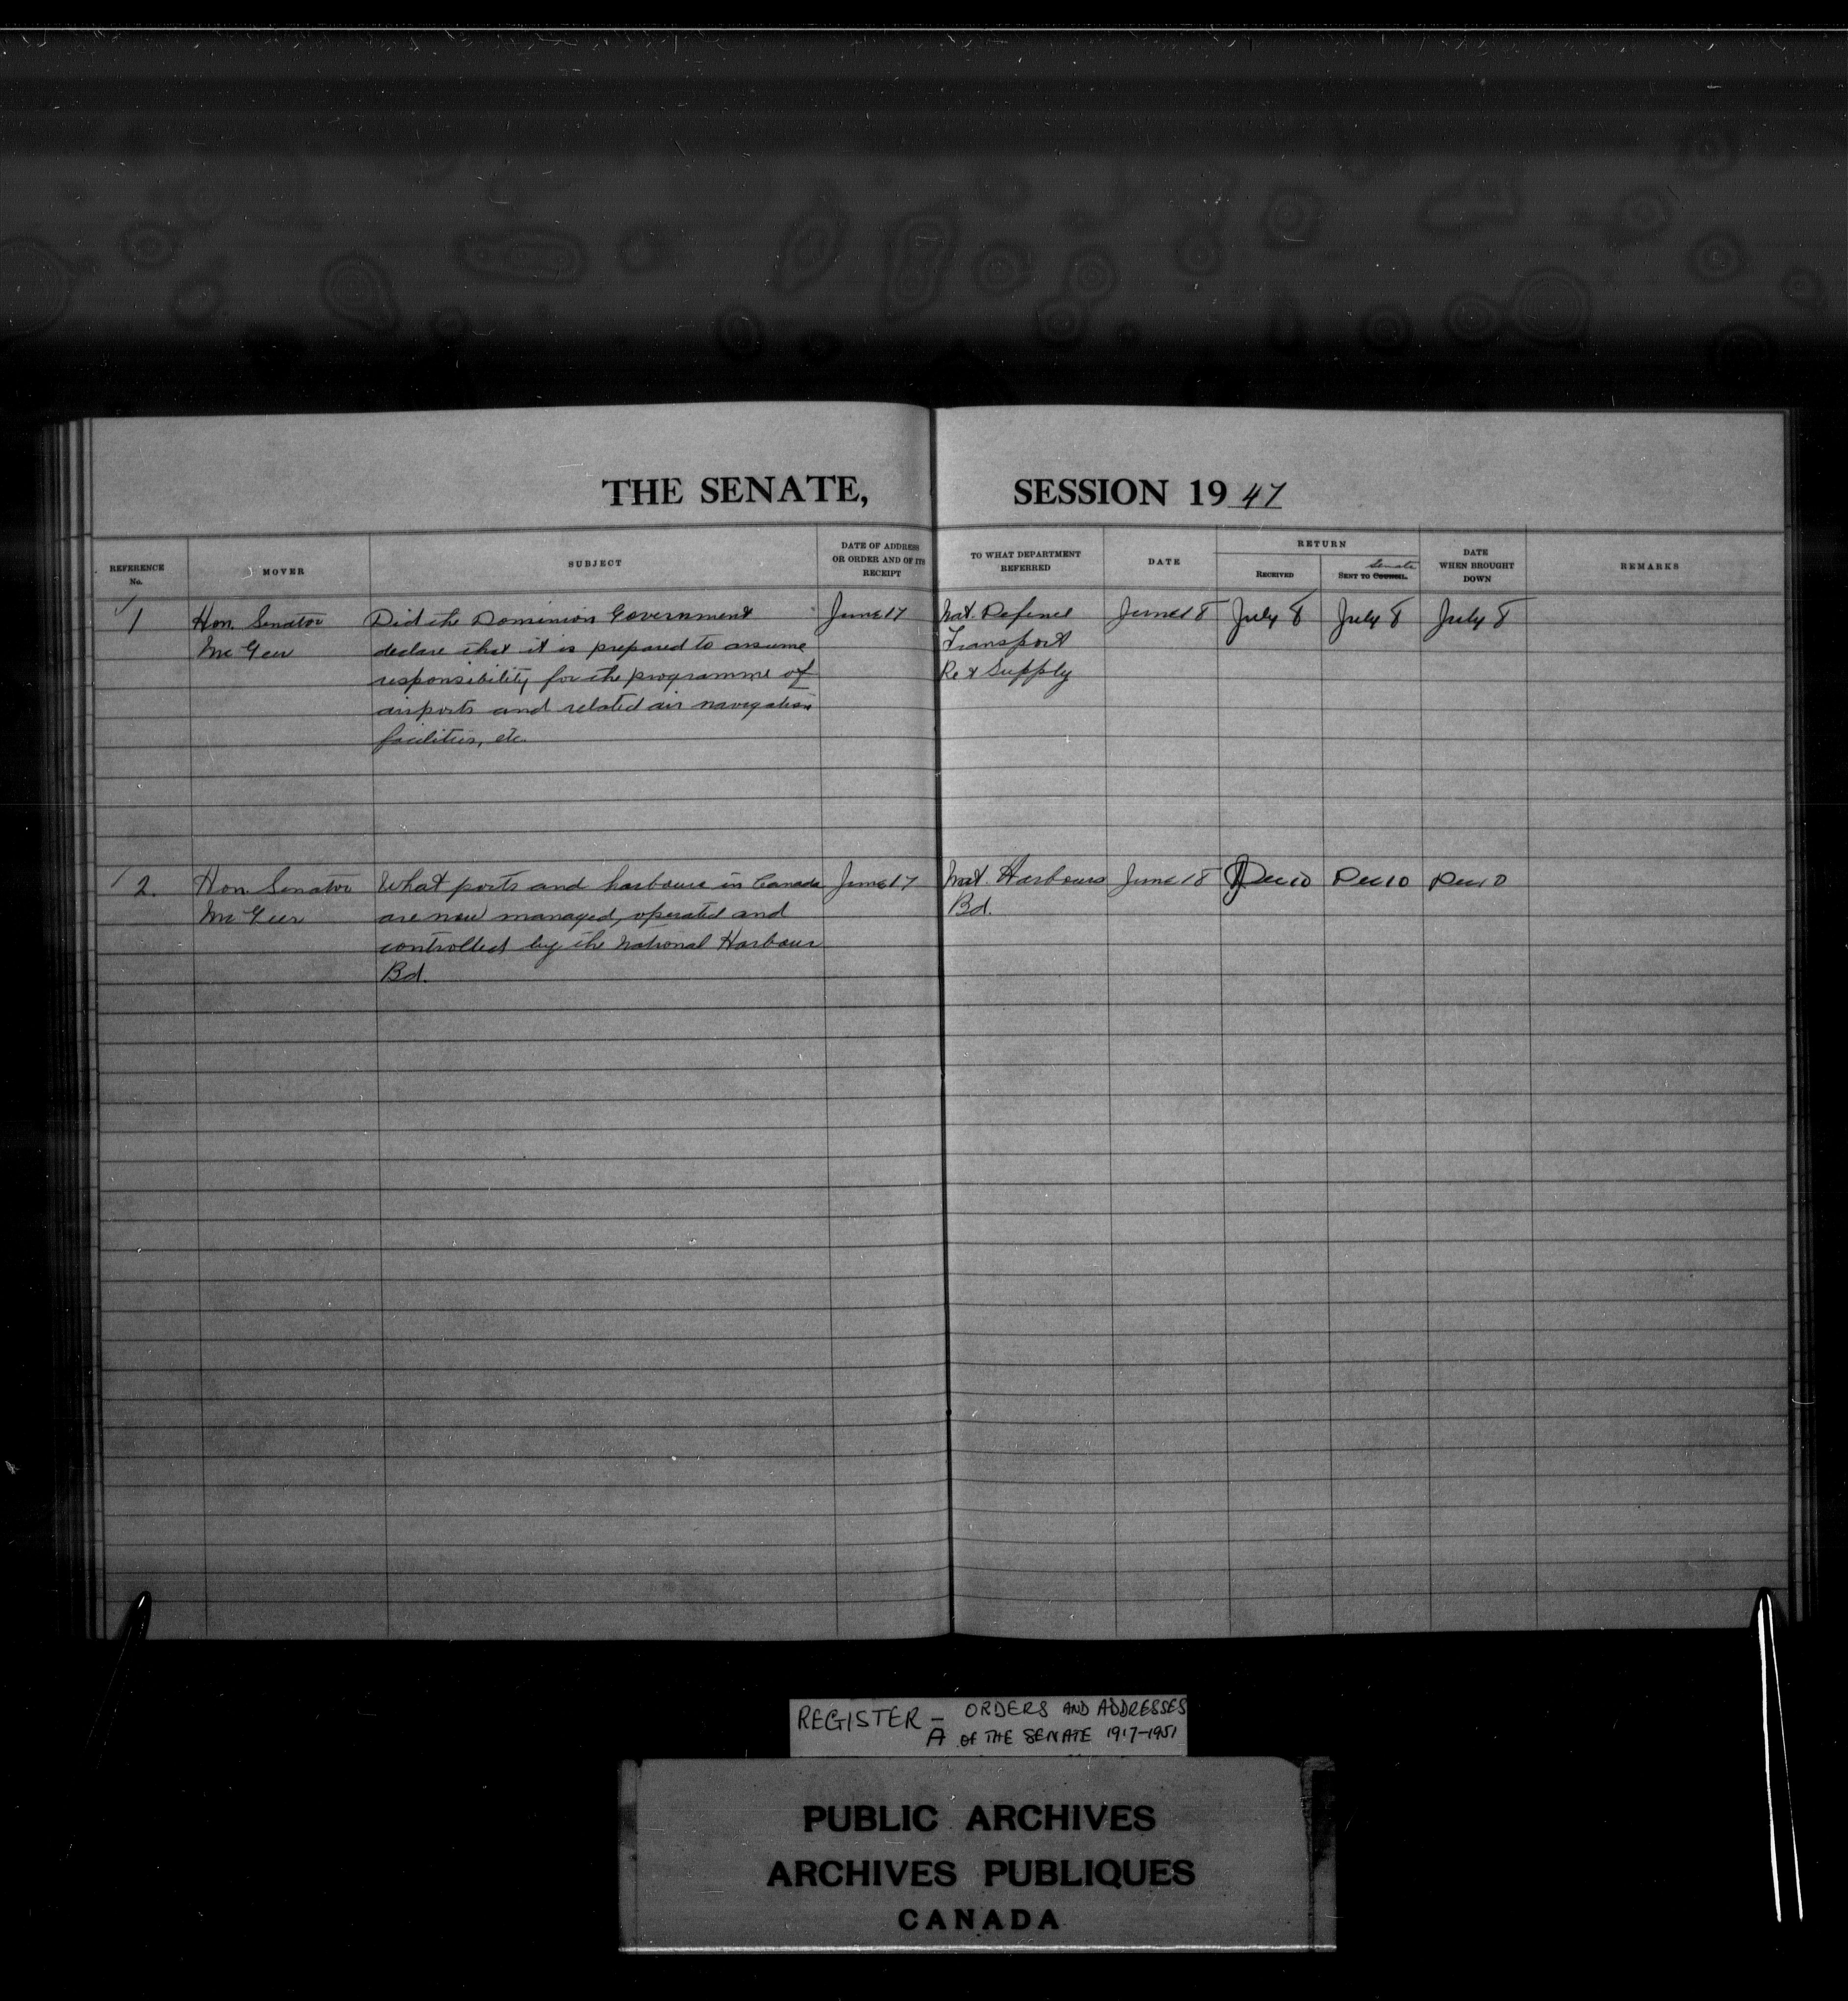 THE SENATE, SESSION 19 47
REFERENCE No.
MOVER
SUBJECT
DATE OF ADDRESS OR ORDER AND OF ITS RECEIPT
TO WHAT DEPARTMENT REFERRED
DATE
RETURN
RECEIVED
SENT TO COUNCIL. Senate
DATE WHEN BROUGHT DOWN
REMARKS
1
Hon. Senator
McGeer
Did the Dominion Government
declare that it is prepared to assume
responsibility for the programme of
airports and related air navigation
facilities, etc.
June 17
Nat. Defence
Transport
Re & Supply
June 18
July 8
July 8
July 8
2.
Hon. Senator
McGeer
What ports and harbours in Canada
are now managed, operated and
controlled by the National Harbour
Bd.
June 17
Nat. Harbours
Bd.
June 18
Dec 10
Dec 10
Dec 10
REGISTER – ORDERS AND ADDRESSES
A OF THE SENATE 1917-1951
PUBLIC ARCHIVES
ARCHIVES PUBLIQUES
CANADA